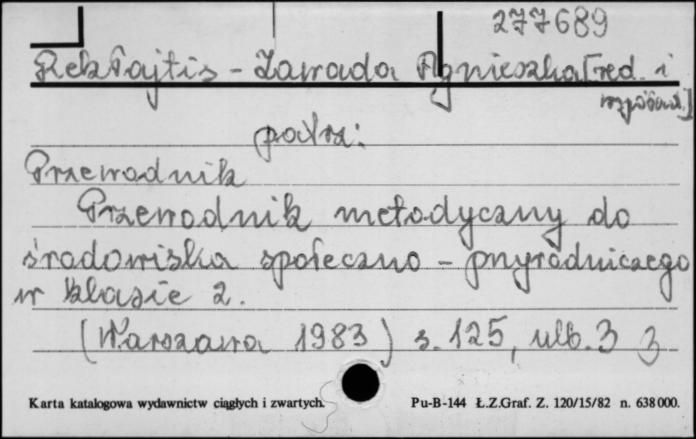 277689
Rekłajtis-Zawada Agnieszka [red. i
współaut.]
patrz:
Przewodnik
Przewodnik metodyczny do
środowiska społeczno-przyrodniczego
w klasie 2.
(Warszawa 1983) s. 125, nlb. 3 3
Karta katalogowa wydawnictw ciągłych i zwartych. Pu-B-144 Ł.Z.Graf. Z. 120/15/82 n. 638000.